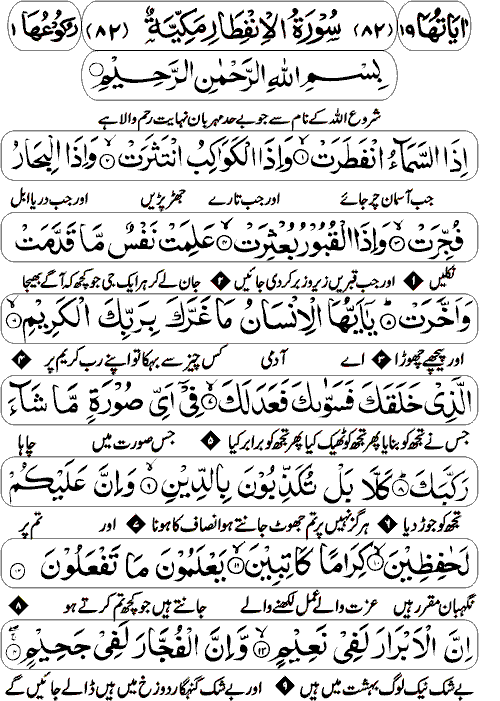 اٰيَاتُهَا ١٩ (٨٢) سُوْرَةُ الْاِنْفِطَارِ مَكِّيَّةٌ (٨٢) رُكُوْعُهَا ١
بِسْمِ اللهِ الرَّحْمٰنِ الرَّحِيْمِ
شروع اللہ کے نام سے جو بے حد مہربان نہایت رحم والا ہے
اِذَا السَّمَآءُ انْفَطَرَتْ ۙ۱ وَاِذَا الْكَوَاكِبُ انْتَثَرَتْ ۙ۲ وَاِذَا الْبِحَارُ
جب آسمان چر جائے اور جب تارے جھڑ پڑیں اور جب دریا ابل
فُجِّرَتْ ۙ۳ وَاِذَا الْقُبُوْرُ بُعْثِرَتْ ۙ۴ عَلِمَتْ نَفْسٌ مَّا قَدَّمَتْ
نکلیں ۱ اور جب قبریں زیر و زبر کر دی جائیں ۲ جان لے کر ہر ایک جی جو کچھ کہ آگے بھیجا
وَاَخَّرَتْ ؕ۵ يٰۤاَيُّهَا الْاِنْسَانُ مَا غَرَّكَ بِرَبِّكَ الْكَرِيْمِ ۙ۶
اور پیچھے چھوڑا ۳ اے آدمی کس چیز سے بہکا تو اپنے رب کریم پر ۴
الَّذِيْ خَلَقَكَ فَسَوّٰىكَ فَعَدَلَكَ ۙ۷ فِيْۤ اَيِّ صُوْرَةٍ مَّا شَآءَ
جس نے تجھ کو بنایا پھر تجھ کو ٹھیک کیا پھر تجھ کو برابر کیا ۵ جس صورت میں چاہا
رَكَّبَكَ ؕ۸ كَلَّا بَلْ تُكَذِّبُوْنَ بِالدِّيْنِ ۙ۹ وَاِنَّ عَلَيْكُمْ
تجھ کو جوڑ دیا ۶ ہرگز نہیں پر تم جھوٹ جانتے ہو انصاف کا ہونا ۷ اور تم پر
لَحٰفِظِيْنَ ۙ۱۰ كِرَامًا كَاتِبِيْنَ ۙ۱۱ يَعْلَمُوْنَ مَا تَفْعَلُوْنَ ۱۲
نگہبان مقرر ہیں عزت والے عمل لکھنے والے جانتے ہیں جو کچھ تم کرتے ہو ۸
اِنَّ الْاَبْرَارَ لَفِيْ نَعِيْمٍ ۙ۱۳ وَاِنَّ الْفُجَّارَ لَفِيْ جَحِيْمٍ
بے شک نیک لوگ بہشت میں ہیں ۹ اور بے شک گنہگار دوزخ میں ہیں ڈالے جائیں گے